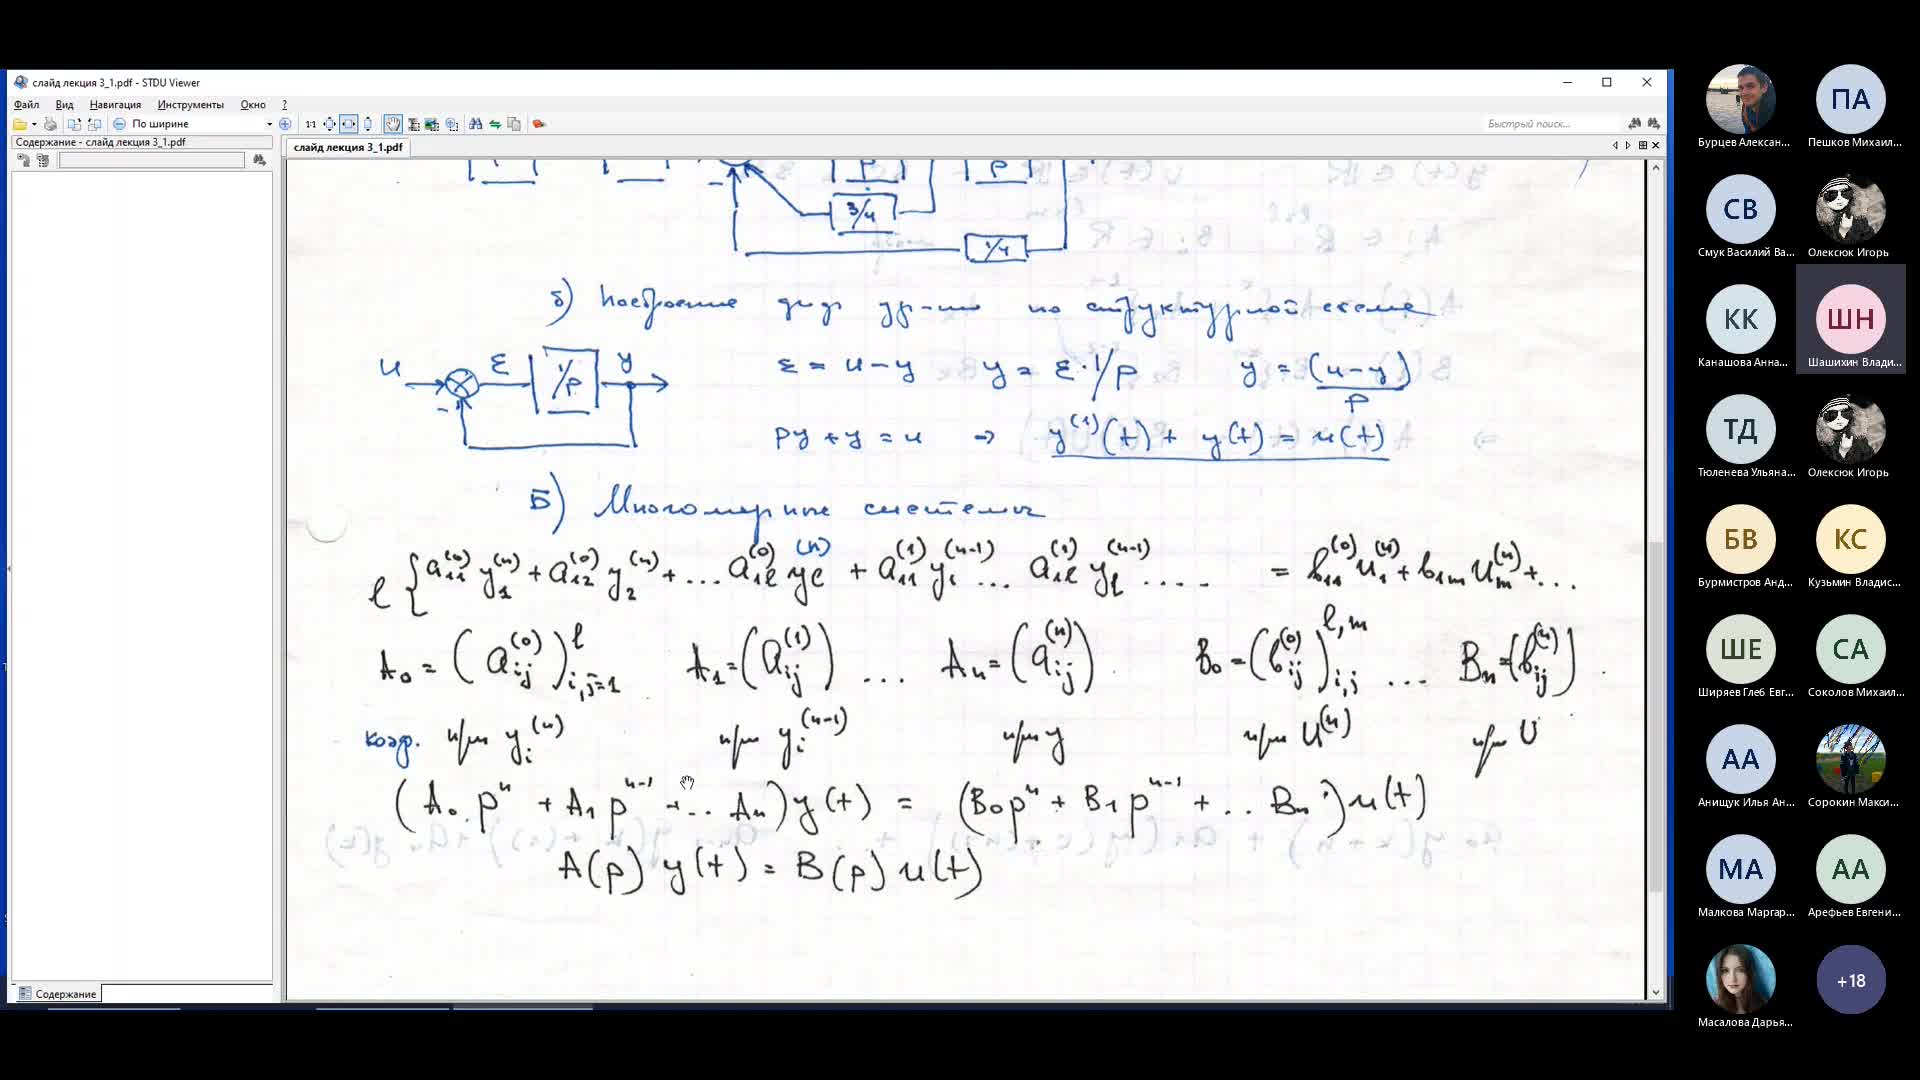 слайд лекция 3_1.pdf - STDU Viewer
Файл Вид Навигация Инструменты Окно ?
По ширине
1:1
Быстрый поиск...
Содержание - слайд лекция 3_1.pdf
слайд лекция 3_1.pdf
P P
3/4
1/4
б) Построение диф ур-ия по структурной схеме
u ε 1/p y
ε = u - y y = ε · 1/p y = (u-y)/p
py + y = u ⇒ y⁽¹⁾(t) + y(t) = u(t)
Б) Многомерные системы
ℓ { a₁₁⁽⁰⁾ y₁⁽ⁿ⁾ + a₁₂⁽⁰⁾ y₂⁽ⁿ⁾ + ... a₁ℓ⁽⁰⁾ yℓ⁽ⁿ⁾ + a₁₁⁽¹⁾ y₁⁽ⁿ⁻¹⁾ ... a₁ℓ⁽¹⁾ yℓ⁽ⁿ⁻¹⁾ .... = b₁₁⁽⁰⁾ u₁⁽ⁿ⁾ + b₁ₘ uₘ⁽ⁿ⁾ + ...
A₀ = (aᵢⱼ⁽⁰⁾)ᵢ,ⱼ₌₁^ℓ A₁ = (aᵢⱼ⁽¹⁾) ... Aₙ = (aᵢⱼ⁽ⁿ⁾) B₀ = (bᵢⱼ⁽⁰⁾)ᵢ,ⱼ^ℓ,m ... Bₙ = (bᵢⱼ⁽ⁿ⁾)
коэф. при yᵢ⁽ⁿ⁾ при yᵢ⁽ⁿ⁻¹⁾ при y при U⁽ⁿ⁾ при U
(A₀ pⁿ + A₁ pⁿ⁻¹ + ... Aₙ) y(t) = (B₀ pⁿ + B₁ pⁿ⁻¹ + ... Bₙ) u(t)
A(p) y(t) = B(p) u(t)
Содержание
Бурцев Алексан...
ПА
Пешков Михаил...
СВ
Смук Василий Ва...
Олексюк Игорь
КК
Канашова Анна...
ШН
Шашихин Влади...
ТД
Тюленева Ульяна...
Олексюк Игорь
БВ
Бурмистров Анд...
КС
Кузьмин Владис...
ШЕ
Ширяев Глеб Евг...
СА
Соколов Михаил...
АА
Анищук Илья Ан...
Сорокин Макси...
МА
Малкова Маргар...
АА
Арефьев Евгени...
Масалова Дарья...
+18